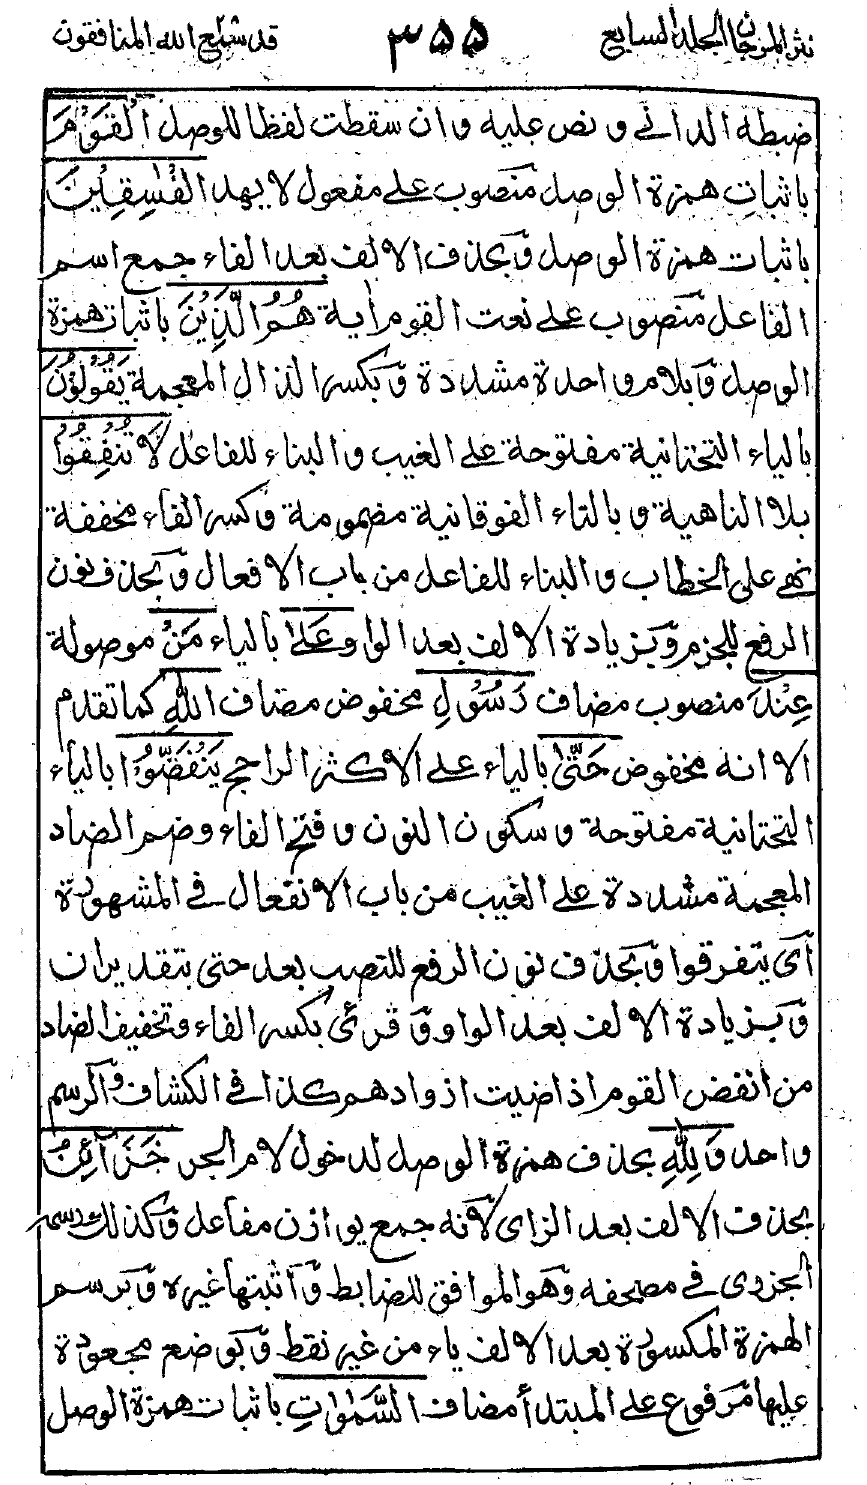 نثر المرجان الجلد السابع ٣٥٥ قد سمع الله المنافقون
ضبطه الدانى و نص عليه و ان سقطت لفظا للوصل الْقَوْمَ
باثبات همزة الوصل منصوب على مفعول لا يهد الْفٰسِقِيْنَ
باثبات همزة الوصل وَبحذف الالف بعد الفاء جمع اسم
الفاعل منصوب على نعت القوم أية هُمُ الَّذِيْنَ باثبات همزة
الوصل وَبلام واحدة مشددة وَبكسر الذال المعجمة يَقُوْلُوْنَ
بالياء التحتانية مفتوحة على الغيب و البناء للفاعل لَا تُنْفِقُوْا
بلا الناهية و بالتاء الفوقانية مضمومة وَكسر الفاء مخففة
نهى على الخطاب و البناء للفاعل من باب الافعال وَبحذف نون
الرفع للجزم وَبزيادة الالف بعد الواو عَلٰى بالياء مَنْ موصولة
عِنْدَ منصوب مضاف رَسُوْلِ مخفوض مضاف اللّٰهِ كما تقدم
الا انه مخفوض حَتّٰى بالياء على الاكثر الراجح يَنْفَضُّوْا بالياء
التحتانية مفتوحة و سكون النون و فتح الفاء و ضم الضاد
المعجمة مشددة على الغيب من باب الانفعال فى المشهورة
أى يتفرقوا وَبحذف نون الرفع للنصب بعد حتى بتقدير ان
وَبزيادة الالف بعد الواو وَ قرئ بكسر الفاء و تخفيف الضاد
من انفض القوم اذا ضيت ازوادهم كذا فى الكشاف وَالرسم
واحد وَلِلّٰهِ بحذف همزة الوصل لدخول لام الجر خَزَآئِنُ
بحذف الالف بعد الزاى لأنه جمع يوازن مفاعل وَكذلك رسمه
الجزرى فى مصحفه وَهو الموافق للضابط وَأثبتها غيره وَبرسم
الهمزة المكسورة بعد الالف ياء من غير نقط وَبوضع مجعودة
عليها مرفوع على المبتدأ مضاف السَّمٰوٰتِ باثبات همزة الوصل